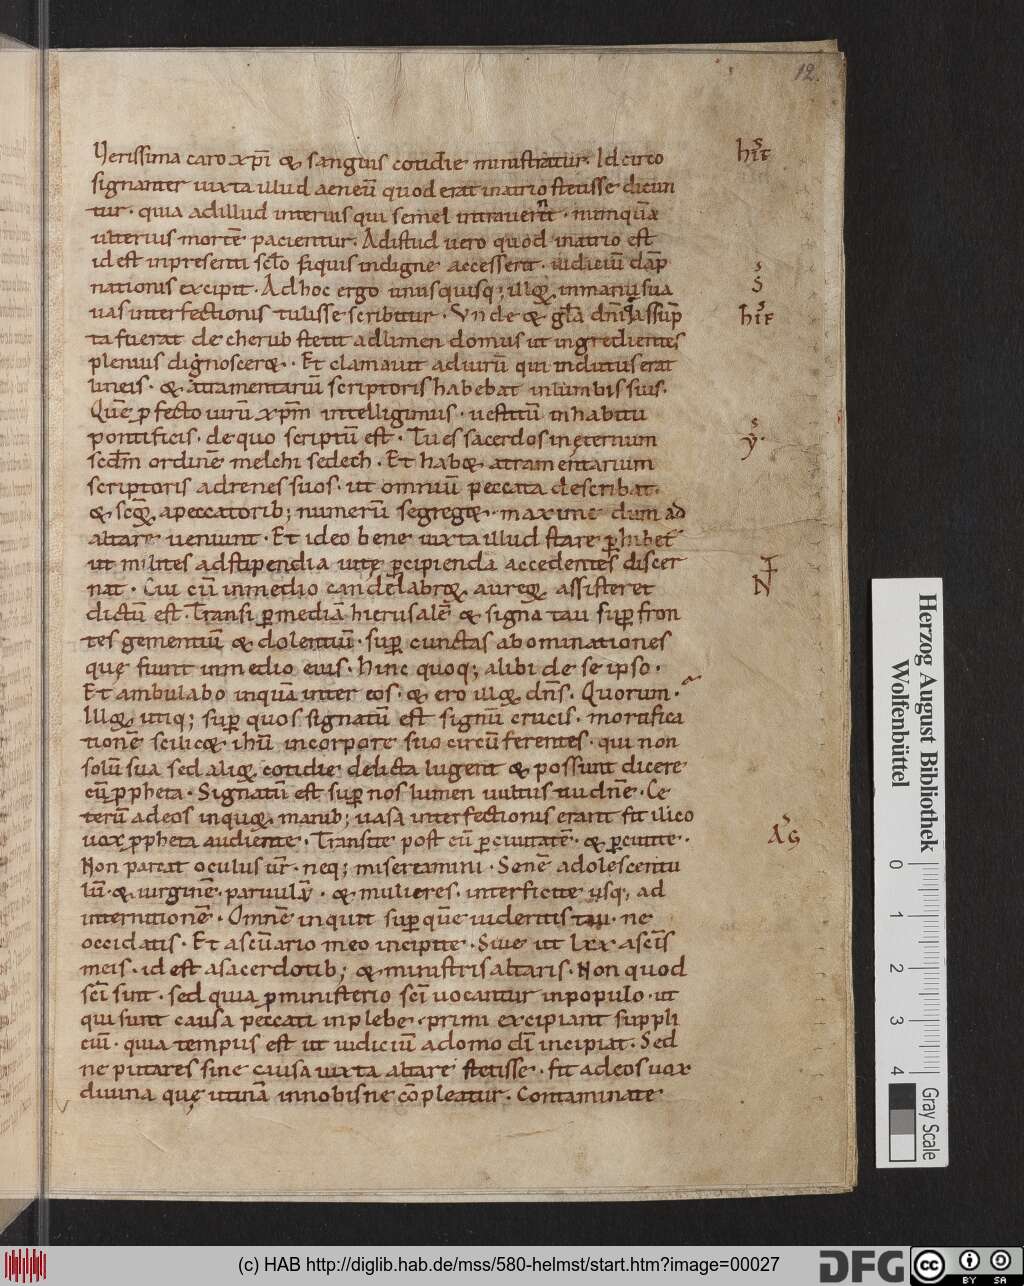 12.
Verissima caro xp̄i & sanguis cotidie ministratur. Idcirco
signanter iuxta illud aeneū quod erat in atrio stetisse dicun
tur. quia ad illud interius qui semel intrauerint. numquā
ulterius mortē pacientur. Ad istud uero quod in atrio est
id est in presenti sc̄lo si quis indigne accesserit. iudiciū dāp
nationis excipit. Ad hoc ergo unusquisq; illoꝝ in manu sua
uas interfectionis tulisse scribitur. Unde & gl̄a dn̄i q̄ assūp
ta fuerat de cherub stetit ad limen domus ut ingredientes
plenius dignosceret. Et clamauit ad uirū qui indutus erat
lineis. & atramentariū scriptoris habebat in lumbis suis.
Quē ꝓfecto uirū xp̄m intelligimus. uestitū in habitu
pontificis. de quo scriptū est. Tu es sacerdos in ęternum
scd̄m ordinē melchisedech. Et habet atramentarium
scriptoris ad renes suos. ut omniū peccata describat.
& scōꝝ a peccatorib; numerū segreget. maxime dum ad
altare ueniunt. Et ideo bene iuxta illud stare ꝑhibet
ut milites ad stipendia uitę ꝑcipienda accedentes discer
nat. Cui cū in medio candelabroꝝ aureoꝝ assisteret
dictū est. Transi ꝑ mediā hierusalē & signa tau sup̄ fron
tes gementiū & dolentiū. sup̄ cunctas abominationes
quę fiunt in medio eius. Hinc quoq; alibi de se ipso.
Et ambulabo inquā inter eos. & ero illoꝝ dn̄s. Quorum.
Illoꝝ utiq; sup̄ quos signatū est signū crucis. mortifica
tionē scilicet ih̄u in corpore suo circūferentes. qui non
solū sua sed alioꝝ cotidie delicta lugent & possunt dicere
cū ꝓpheta. Signatū est sup̄ nos lumen uultus tui dn̄e. Ce
terū ad eos in quoꝝ manib; uasa interfectionis erant fit ilico
uox ꝓpheta audiente. Transite post eū ꝑ ciuitatē. & ꝑcutite.
Non parcat oculus ur̄. neq; misereamini. Senē adolescentu
lū. & uirginē. paruulū. & mulieres. interficite usq; ad
internitionē. Omnē inquit sup̄ quē uideritis tau. ne
occidatis. Et a sc̄uario meo incipite. Siue ut lxx a sc̄is
meis. id est a sacerdotib; & ministris altaris. Non quod
sc̄i sint. sed quia ꝑ ministerio sc̄i uocantur in populo. ut
qui sunt causa peccati in plebe. primi excipiant suppli
ciū. quia tempus est ut iudiciū a domo dī incipiat. Sed
ne putares sine causa iuxta altare stetisse. fit ad eos uox
diuina quę utinā in nobis ne cōpleatur. Contaminate
Herzog August Bibliothek
Wolfenbüttel
0
1
2
3
4
Gray Scale
(c) HAB http://diglib.hab.de/mss/580-helmst/start.htm?image=00027
DFG
cc
BY SA